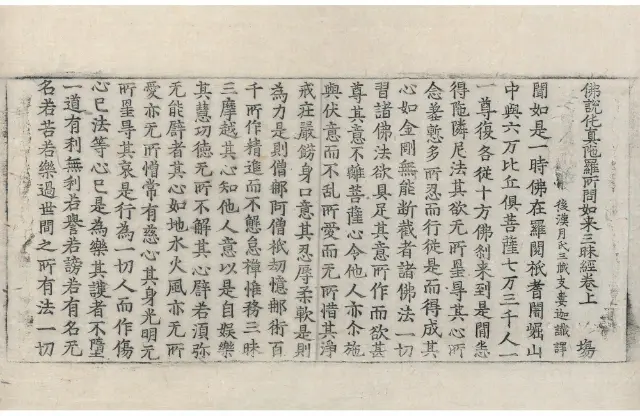 佛說伅真陁羅所問如来三昧經卷上 塲
後漢月氏三藏支婁迦讖譯
聞如是一時佛在羅閱祇耆闍崛山
中與六万比丘俱菩薩七万三千人一
一尊復各従十方佛剎来到是閒悉
得陁隣尼法其欲无所罣㝵其心所
念羞慙多所忍而行従是而得成其
心如金剛無能斷截者諸佛法一切
習諸佛法欲具足其意所作而欲甚
尊其意不離菩薩心令他人亦尒施
與伏意而不乱所愛而无所惜其浄
戒莊嚴飾身口意其忍辱柔軟是則
為力是則僧郍阿僧祇劫憶郍術百
千所作精進而不懈怠禅惟務三昧
三摩越其心知他人意以是自娱樂
其慧功德无所不解其心辟若湏弥
无能辟者其心如地水火風亦无所
愛亦无所憎常有慈心其身光明无
所罣㝵其哀是行為一切人而作傷
心巳法等心巳是為樂其護者不墮
一道有利無利若譽若謗若有名无
名若苦若樂過世間之所有法一切